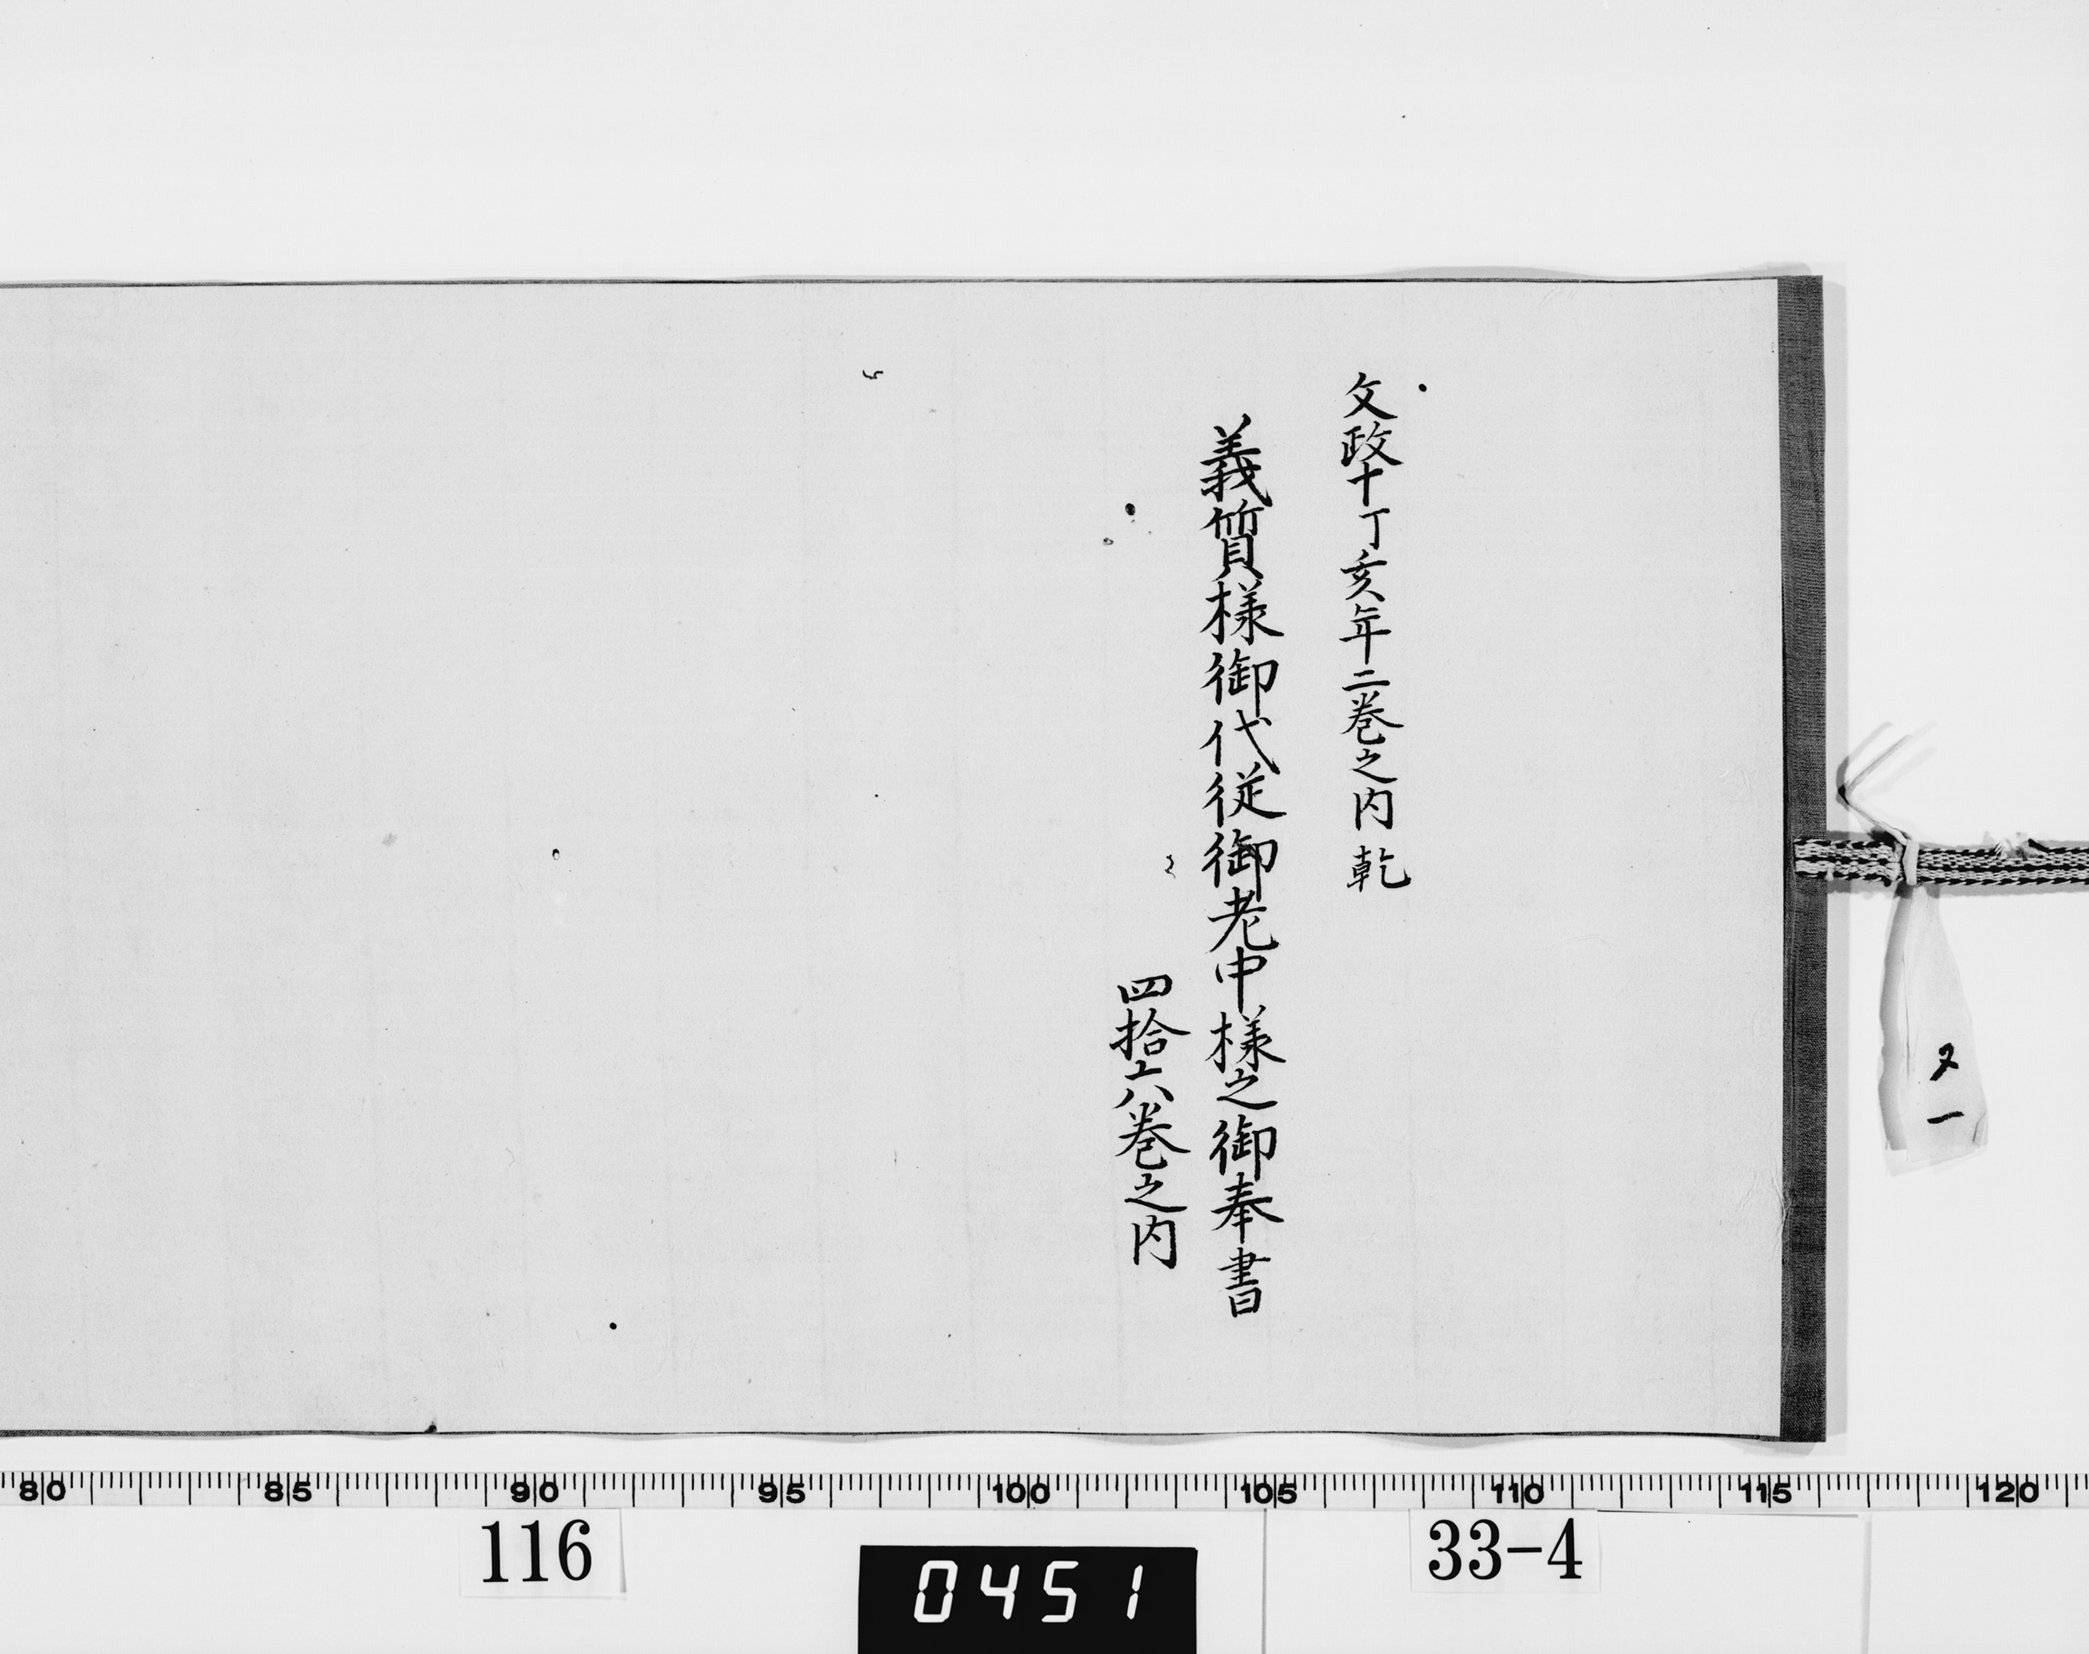 文政十丁亥年二巻之内 乾
義質様御代従御老中様之御奉書
四拾六巻之内
又一
80 85 90 95 100 105 110 115 120
116
0451
33-4